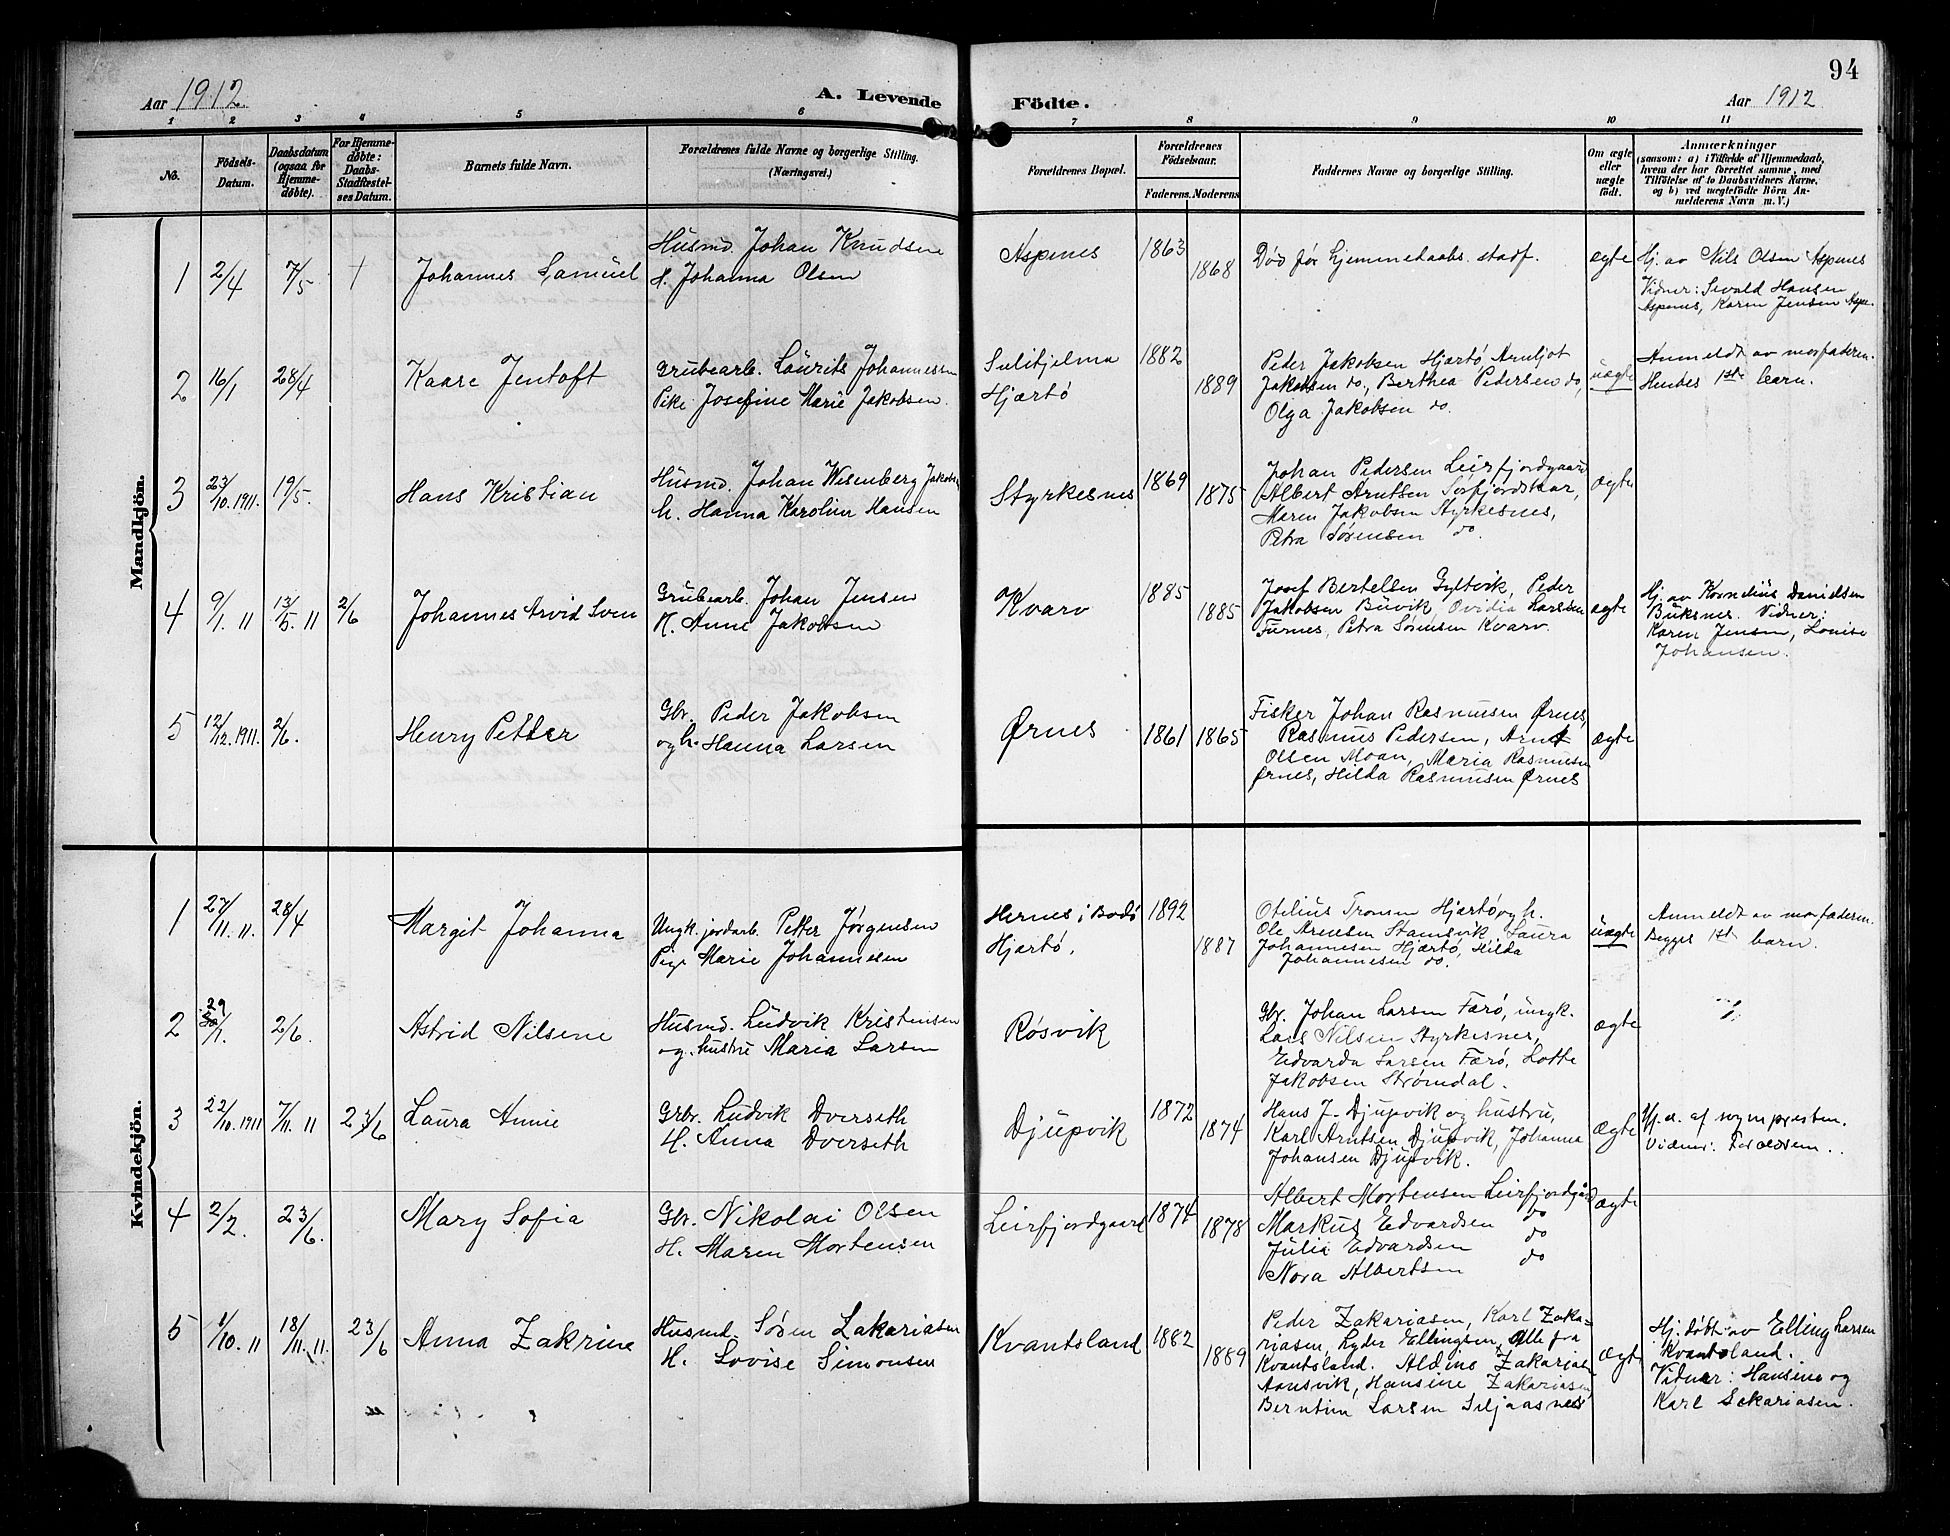 94
Aar 1912. A. Levende Födte. Aar 1912
1 2 3 4 5 6 7 8 9 10 11
No.
Födsels-
Datum.
Daabsdatum
(ogsaa for
Hjemme-
døbte).
For Hjemme-
døbte:
Daabs-
Stadfæstel-
ses Datum.
Barnets fulde Navn.
Forældrenes fulde Navne og borgerlige Stilling.
(Næringsvei.)
Forældrenes Bopæl.
Forældrenes
Födselsaar.
Faderens. Moderens
Faddernes Navne og borgerlige Stilling.
Om ægte
eller
uægte
født.
Anmærkninger
(saasom: a) i Tilfælde af Hjemmedaab,
hvem der har forrettet samme, med
Tilföielse af to Daabsvidners Navne,
og b) ved uægtefödte Börn An-
melderens Navn m. V.)
Mandkjön.
1 2/4 7/5 † Johannes Samuel
Husmd. Johan Knudsen
H. Johanna Olsen
Aspenes 1863 1868
Død før hjemmedaabs. stadf.
ægte
Hj. av Nils Olsen Aspenes
Vidner: Sevald Hansen
Aspenes, Karen Jensen Aspe-
2 16/1 28/4 Kaare Jentoft
Grubearb. Laurits Johannessen
Pike Josefine Marie Jakobsen.
Sulitjelma
Hjærtø
1882 1889
Peder Jakobsen Hjærtø, Arnljot
Jakobsen do., Berthea Pedersen do,
Olga Jakobsen do.
uægte
Anmeldt av morfaderen.
Hendes 1ste barn.
3 23/10. 1911. 19/5. Hans Kristian
Husmd. Johan Wisenberg Jakobs.
h. Hanna Karoline Hansen
Styrkesnes 1869 1875
Johan Pedersen Leirfjordgaard
Albert Arntsen Sørfjordskar,
Maren Jakobsen Styrkesnes,
Petra Sørensen do.
ægte
4 9/1. 11 13/5. 11 2/6 Johannes Arvid Sven
Grubearb. Johan Jensen
H. Anne Jakobsen
Kvarv 1885 1885
Josef Bertelsen Gyltvik, Peder
Jakobsen Buvik, Ovidia Larsen
Furnes, Petra Sørensen Kvarv.
ægte
Hj. av Kornelius Danielsen
Buksnes. Vidner:
Karen Jensen, Lovise
Johansen.
5 12/12. 1911. 2/6. Henry Petter
Gbr. Peder Jakobsen
og h. Hanna Larsen
Ørnes 1861 1865
Fisker Johan Rasmusen Ørnes,
Rasmus Pedersen, Arnt
Olsen Moan, Maria Rasmusen
Ørnes, Hilda Rasmusen Ørnes
ægte
Kvindekjön.
1 27/11. 11. 28/4 Margit Johanna
Ungk. jordarb. Petter Jørgensen
Pige Marie Johannesen
Hernes i Bodø
Hjærtø.
1892 1887
Otelius Tronsen Hjærtø og h.
Ole Arentsen Stamsvik, Laura
Johannesen Hjærtø, Hilda
Johannesen do.
uægte
Anmeldt av morfaderen.
Begges 1st barn.
2 29/1. 2/6. Astrid Nilsine
Husmd. Ludvik Kristensen
og hustru Maria Larsen
Røsvik
Gbr. Johan Larsen Færø, ungk.
Lars Nilsen Styrkesnes,
Edvarda Larsen Færø, Lotte
Jakobsen Strømdal.
ægte
3 22/10. 1911 7/11. 11 23/6 Laura Annie
Grbr. Ludvik Dverseth
H. Anna Dverseth
Djupvik 1872 1874
Hans J. Djupvik og hustru,
Karl Arntsen Djupvik, Johanna
Johansen Djupvik.
ægte
Hj.d. af sognepresten.
Vidner: Forældrene..
4 2/2. 23/6. Mary Sofia
Gbr. Nikolai Olsen
H. Maren Mortensen
Leirfjordgaard 1874 1878
Albert Mortensen Leirfjordgård
Markus Edvardsen do
Julie Edvardsen do
Nora Albertsen do
ægte
5 1/10. 11 18/11. 11. 23/6 Anna Zakrine
Husmd. Søren Zakariasen
H. Lovise Simonsen
Kvantsland 1882 1889
Peder Zakariasen, Karl Zaka-
riasen, Lyder Ellingsen, Alle fra
Kvantsland. Aldine Zakariasen
Aansvik, Hansine Zakariasen,
Berntine Larsen Seljaasnes
ægte
Hj. døbt av Elling Larsen
Kvantsland.
Vidner: Hansine og
Karl Sekariasen.